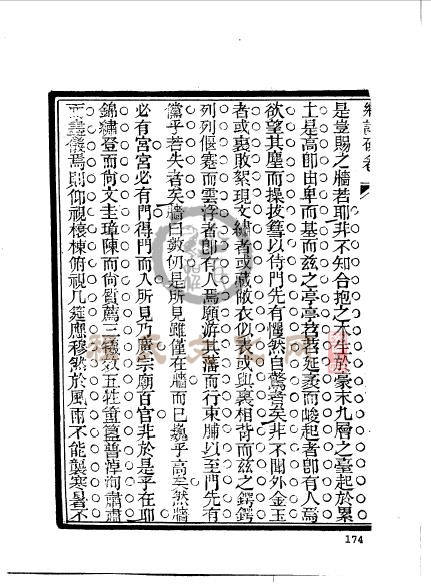 是豈賜之牆若耶非不知合抱之木生於豪末九層之臺起於累
土是高卽由卑而基而茲之亭亭若若延袤而峻起者卽有人焉
欲望其塵而操拔篲以待門先有慢然自驚者矣非不聞外金玉
者或裏敗絮現文繡者或藏敝衣似表或與裏相背而茲之鍔鍔
列列偃蹇而雲浮者卽有人焉願游其藩而行束脯以至門先有
黨乎若失者矣牆曰敦何是所見雖僅在牆而已巍乎高矣然牆
必有宮宮必有門得門而入所見乃廣宗廟百官非於是乎在耶
錦繡登而尙文圭璋陳而尙質薦三犧效五牲簠簋普淖洵肅肅
焉則仰視榱棟俯視几筵應穆然於風雨不能襲寒暑不
174